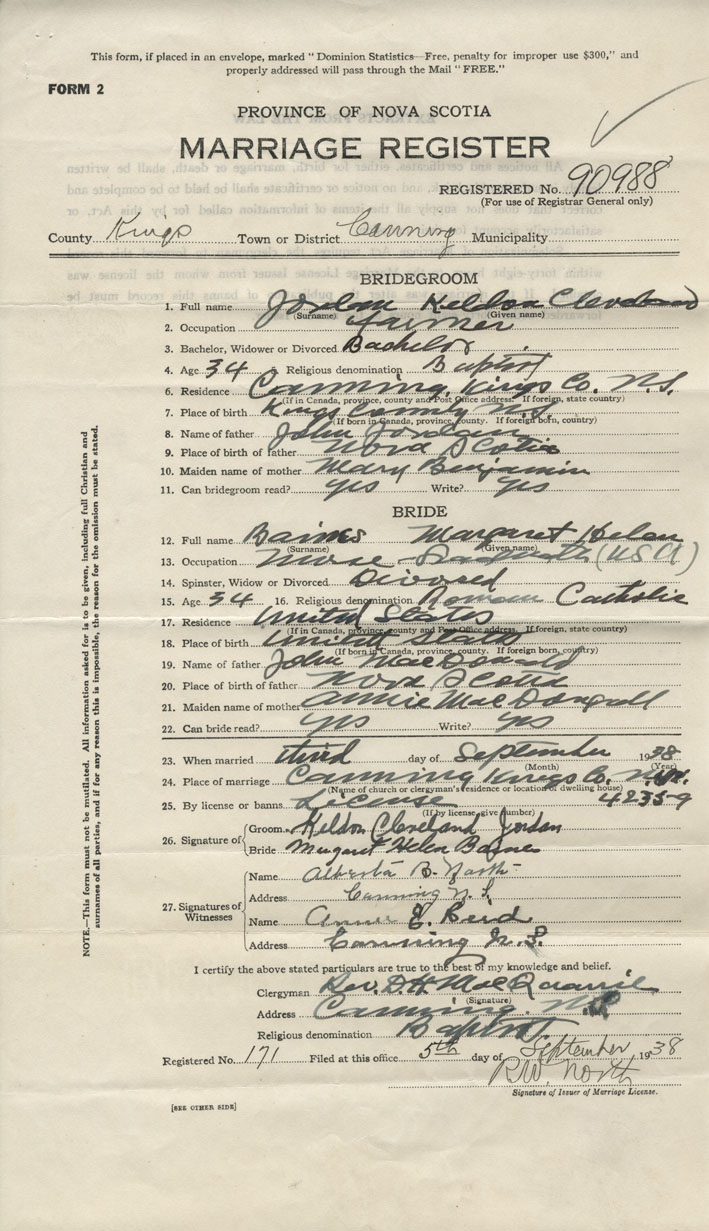 This form, if placed in an envelope, marked "Dominion Statistics—Free, penalty for improper use $300," and
properly addressed will pass through the Mail "FREE."
FORM 2
PROVINCE OF NOVA SCOTIA
MARRIAGE REGISTER
REGISTERED No. 90988
(For use of Registrar General only)
County Kings Town or District Canning Municipality
BRIDEGROOM
1. Full name Jordan Heldon Cleveland
(Surname) (Given name)
2. Occupation Farmer
3. Bachelor, Widower or Divorced Bachelor
4. Age 34 5. Religious denomination Baptist
6. Residence Canning, Kings Co. N.S.
(If in Canada, province, county and Post Office address. If foreign, state country)
7. Place of birth Kings County N.S.
(If born in Canada, province, county. If foreign born, country)
8. Name of father John Jordan
9. Place of birth of father Nova Scotia
10. Maiden name of mother Mary Benjamin
11. Can bridegroom read? yes Write? yes
BRIDE
12. Full name Baines Margaret Helen
(Surname) (Given name)
13. Occupation Nurse (USA)
14. Spinster, Widow or Divorced Divorced
15. Age 34 16. Religious denomination Roman Catholic
17. Residence United States
(If in Canada, province, county and Post Office address. If foreign, state country)
18. Place of birth United States
(If born in Canada, province, county. If foreign born, country)
19. Name of father John MacDonald
20. Place of birth of father Nova Scotia
21. Maiden name of mother Annie MacDougall
22. Can bride read? yes Write? yes
23. When married third day of September 1938
(Month) (Year)
24. Place of marriage Canning Kings Co.
(Name of church or clergyman's residence or location of dwelling house)
25. By license or banns License 42359
(If by license, give number)
26. Signature of Groom Heldon Cleveland Jordan
Bride Margaret Helen Baines
27. Signatures of Witnesses
Name Alberta B. North
Address Canning N.S.
Name Annie E. Reid
Address Canning N.S.
I certify the above stated particulars are true to the best of my knowledge and belief.
Clergyman Rev. D.H. MacQuarrie
(Signature)
Address Canning. N.S.
Religious denomination Baptist
Registered No. 171 Filed at this office 5th day of September 1938
R.W. North
Signature of Issuer of Marriage License.
[SEE OTHER SIDE]
NOTE.—This form must not be mutilated. All information asked for is to be given, including full Christian and
surnames of all parties, and if for any reason this is impossible, the reason for the omission must be stated.